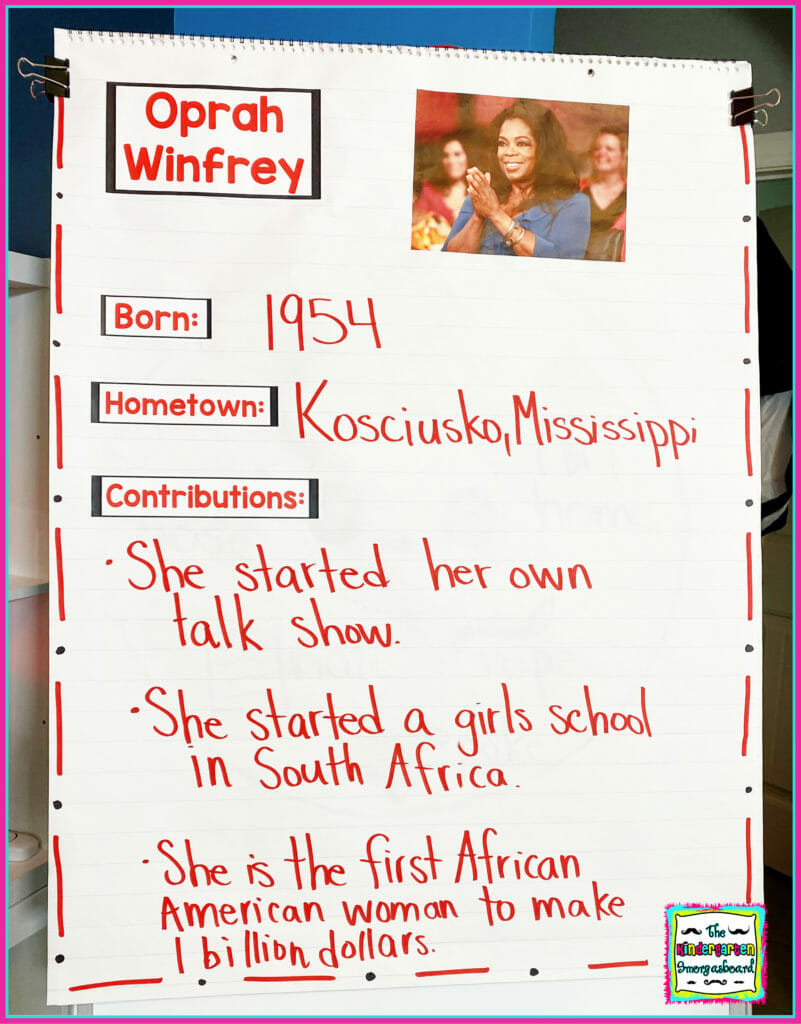 Oprah
Winfrey
Born: 1954
Hometown: Kosciusko, Mississippi
Contributions:
• She started her own
talk show.
• She started a girls school
in South Africa.
• She is the first African
American woman to make
1 billion dollars.
The
Kindergarten
Smorgasboard